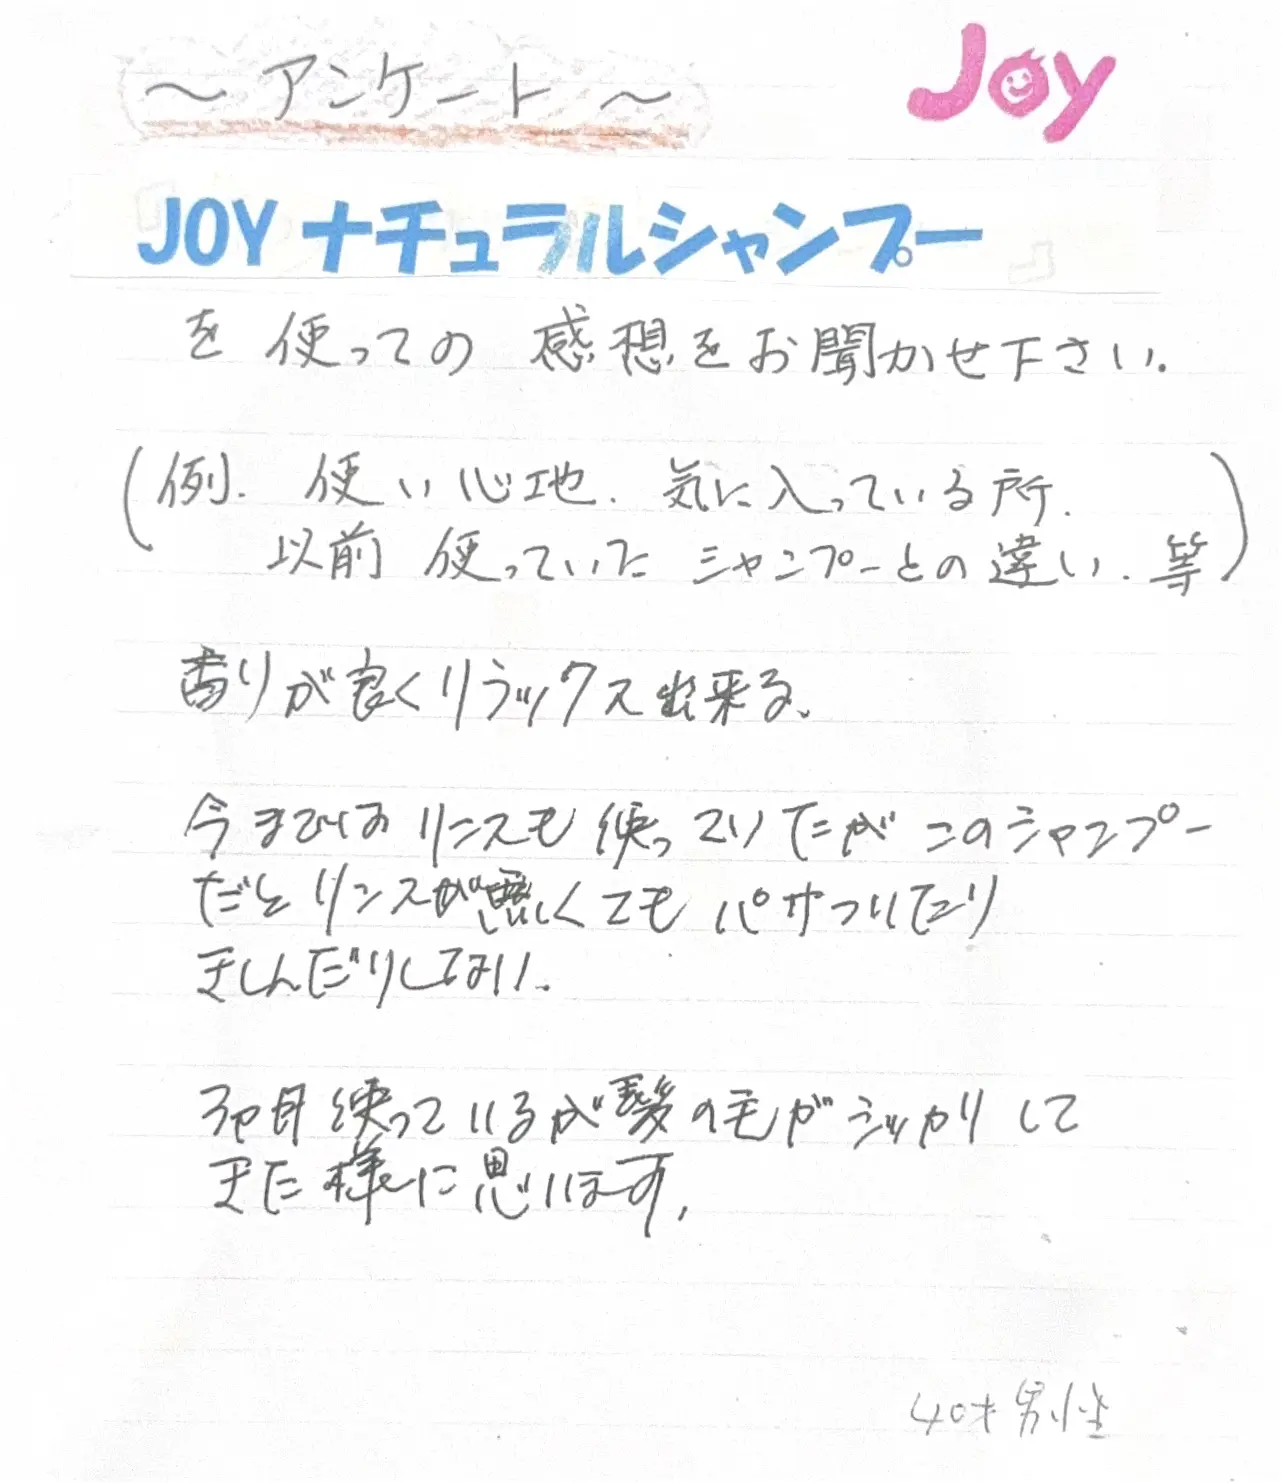 ～アンケート～
Joy
JOY ナチュラルシャンプー
を使っての感想をお聞かせ下さい.
(例. 使い心地. 気に入っている所.
以前使っていたシャンプーとの違い. 等)
香りが良くリラックス出来る、
今まではリンスも使っていたがこのシャンプー
だとリンスが無くてもパサついたり
きしんだりしない.
3ヶ月使っているが髪の毛がシッカリして
きた様に思います,
40才男性